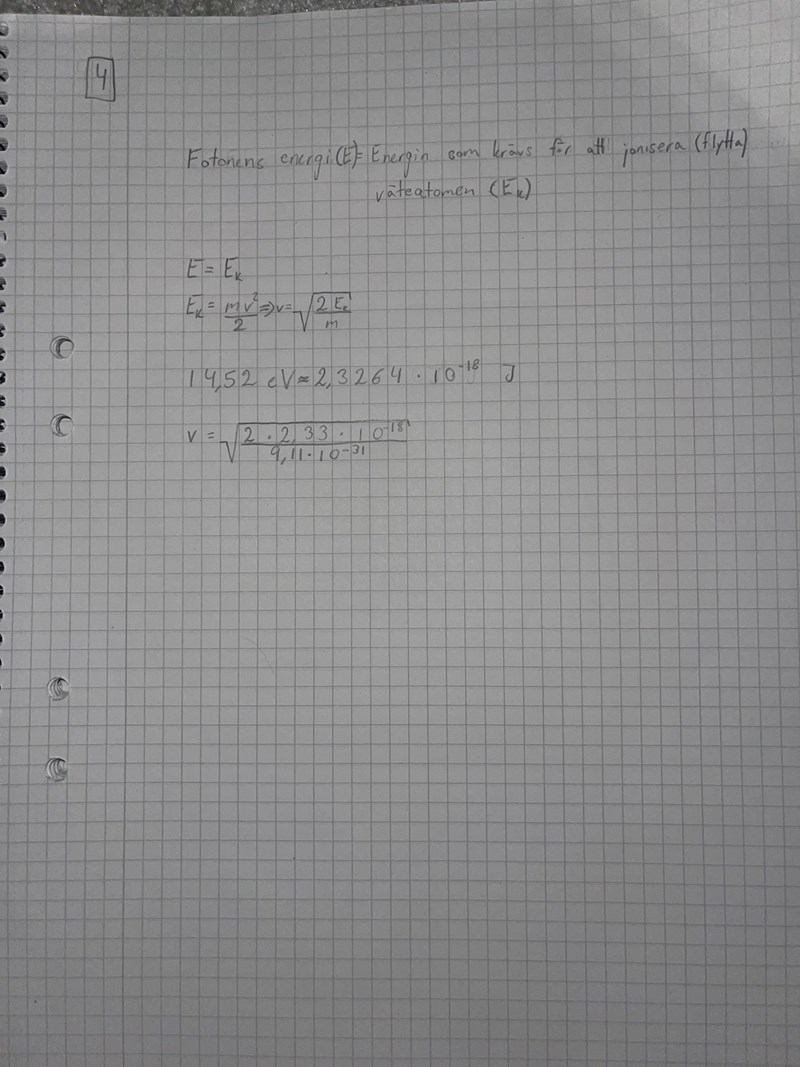 4
Fotonens energi (E) = Energin som krävs för att jonisera (flytta)
väteatomen (Ek)
E = Ek
Ek = mv²/2 ⇒ v = √(2Ek/m)
14,52 eV ≈ 2,3264 · 10⁻¹⁸ J
v = √(2 · 2,33 · 10⁻¹⁸/9,11 · 10⁻³¹)